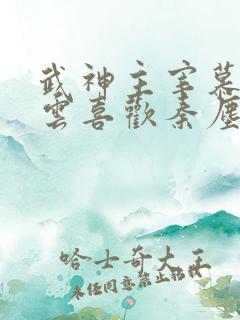 武神主宰慕
雲喜歡秦塵
哈士奇大王
未经同意禁止转载